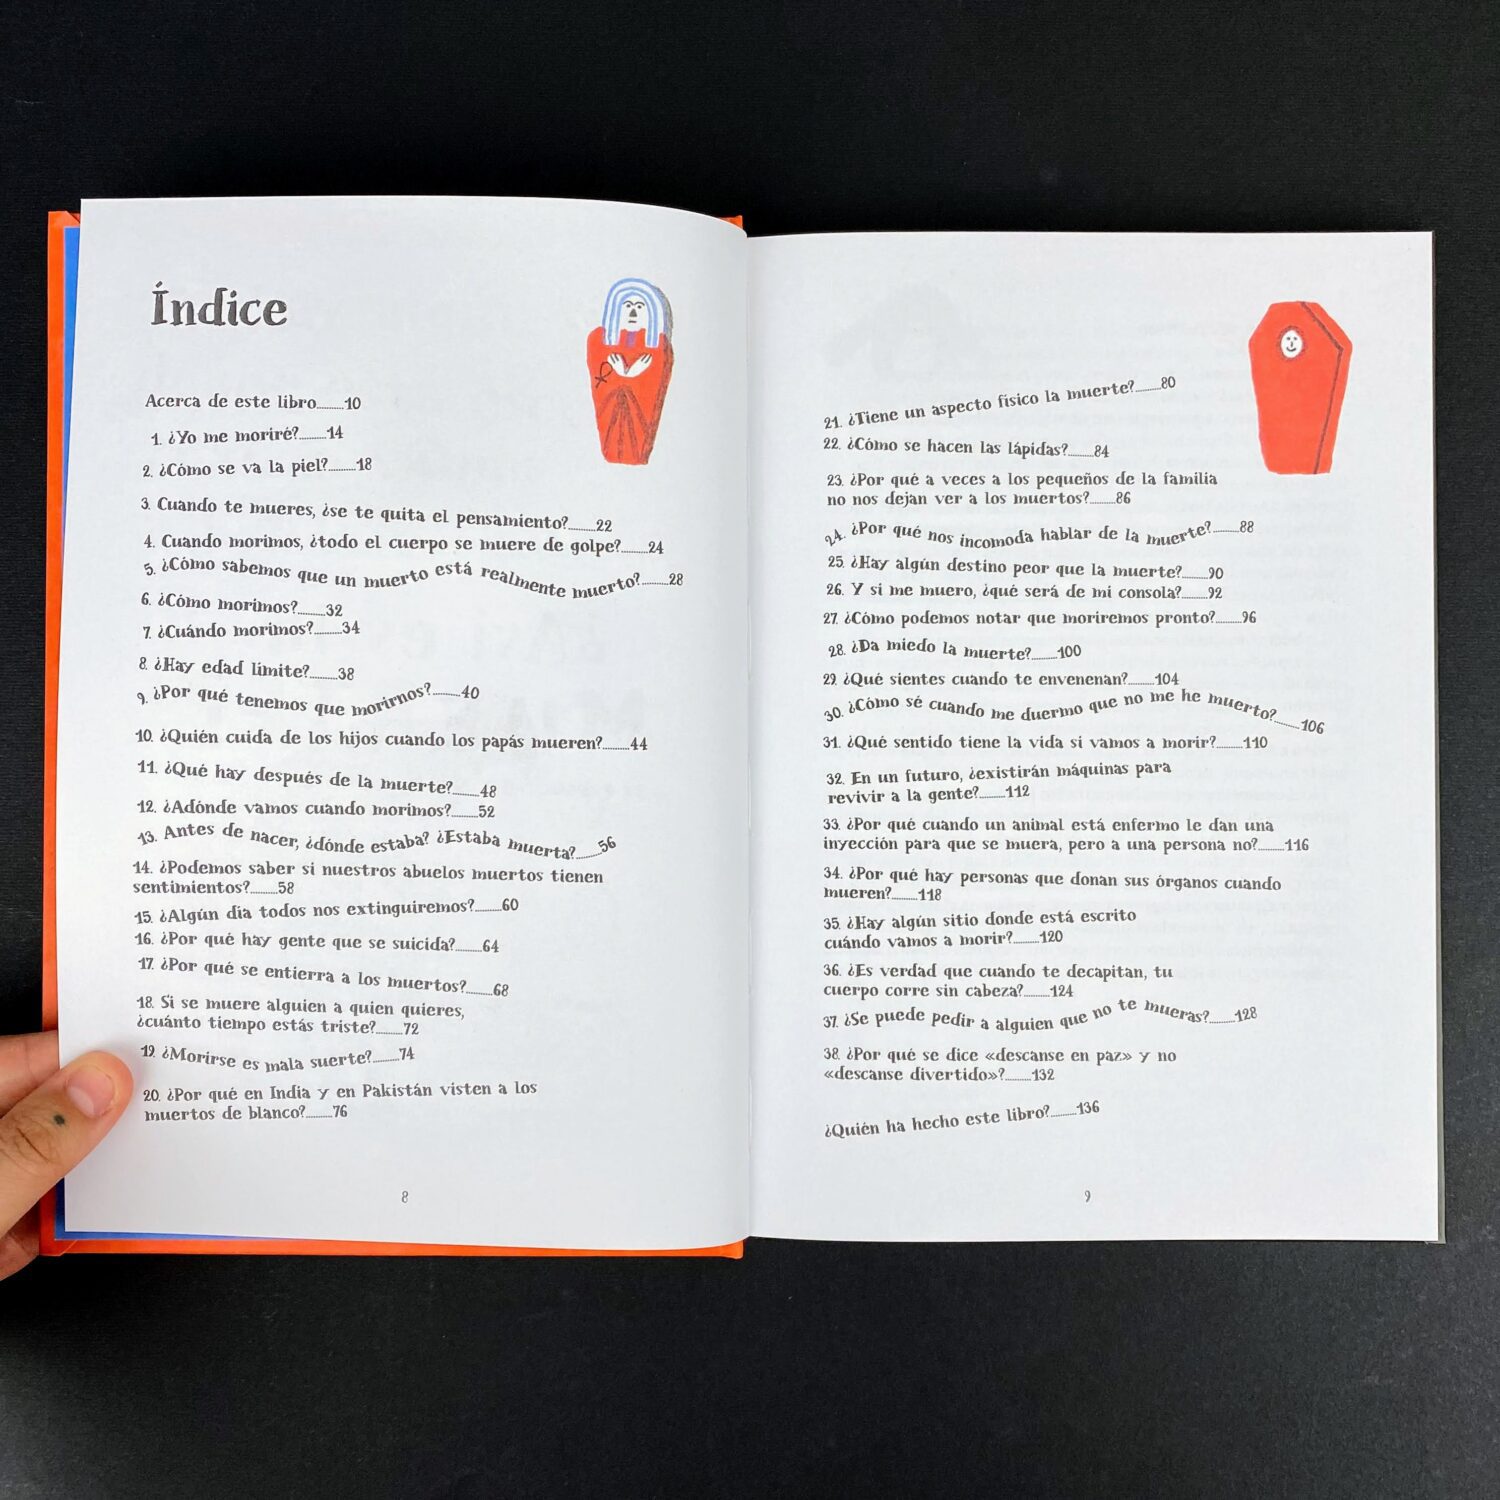 Índice
Acerca de este libro..........10
1. ¿Yo me moriré?..........14
2. ¿Cómo se va la piel?..........18
3. Cuando te mueres, ¿se te quita el pensamiento?..........22
4. Cuando morimos, ¿todo el cuerpo se muere de golpe?..........24
5. ¿Cómo sabemos que un muerto está realmente muerto?..........28
6. ¿Cómo morimos?..........32
7. ¿Cuándo morimos?..........34
8. ¿Hay edad límite?..........38
9. ¿Por qué tenemos que morirnos?..........40
10. ¿Quién cuida de los hijos cuando los papás mueren?..........44
11. ¿Qué hay después de la muerte?..........48
12. ¿Adónde vamos cuando morimos?..........52
13. Antes de nacer, ¿dónde estaba? ¿Estaba muerta?..........56
14. ¿Podemos saber si nuestros abuelos muertos tienen
sentimientos?..........58
15. ¿Algún día todos nos extinguiremos?..........60
16. ¿Por qué hay gente que se suicida?..........64
17. ¿Por qué se entierra a los muertos?..........68
18. Si se muere alguien a quien quieres,
¿cuánto tiempo estás triste?..........72
19. ¿Morirse es mala suerte?..........74
20. ¿Por qué en India y en Pakistán visten a los
muertos de blanco?..........76
8
21. ¿Tiene un aspecto físico la muerte?..........80
22. ¿Cómo se hacen las lápidas?..........84
23. ¿Por qué a veces a los pequeños de la familia
no nos dejan ver a los muertos?..........86
24. ¿Por qué nos incomoda hablar de la muerte?..........88
25. ¿Hay algún destino peor que la muerte?..........90
26. Y si me muero, ¿qué será de mi consola?..........92
27. ¿Cómo podemos notar que moriremos pronto?..........96
28. ¿Da miedo la muerte?..........100
29. ¿Qué sientes cuando te envenenan?..........104
30. ¿Cómo sé cuando me duermo que no me he muerto?..........106
31. ¿Qué sentido tiene la vida si vamos a morir?..........110
32. En un futuro, ¿existirán máquinas para
revivir a la gente?..........112
33. ¿Por qué cuando un animal está enfermo le dan una
inyección para que se muera, pero a una persona no?..........116
34. ¿Por qué hay personas que donan sus órganos cuando
mueren?..........118
35. ¿Hay algún sitio donde está escrito
cuándo vamos a morir?..........120
36. ¿Es verdad que cuando te decapitan, tu
cuerpo corre sin cabeza?..........124
37. ¿Se puede pedir a alguien que no te mueras?..........128
38. ¿Por qué se dice «descanse en paz» y no
«descanse divertido»?..........132
¿Quién ha hecho este libro?..........136
9